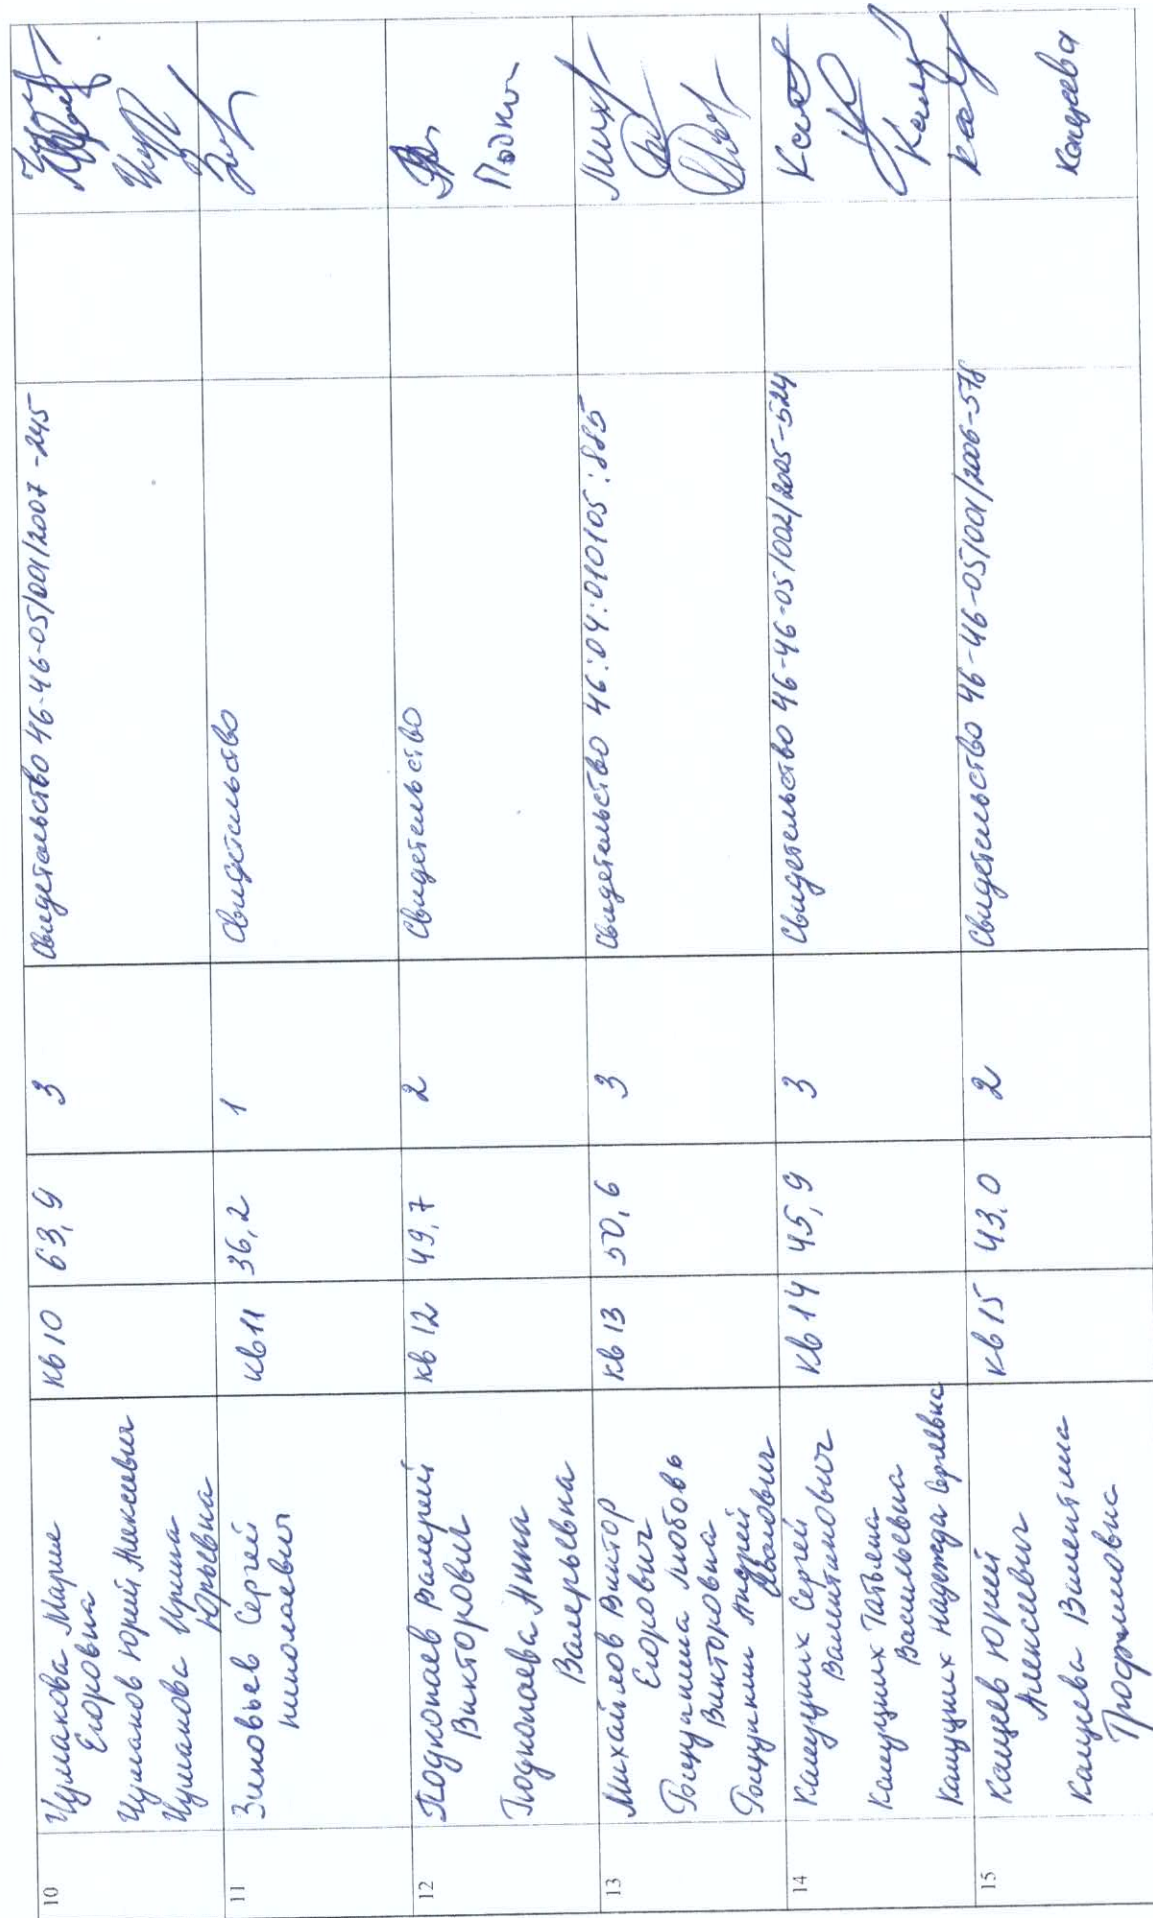 10
Чумакова Мария
Егоровна
Чумаков Юрий Алексеевич
Чумакова Ирина
Юрьевна
кв 10
63,9
3
Свидетельство 46-46-05/001/2007-245
11
Зиновьев Сергей
Николаевич
кв 11
36,2
1
Свидетельство
12
Подкопаев Валерий
Викторович
Подкопаева Нина
Валерьевна
кв 12
49,7
2
Свидетельство
Подкоп
13
Михайлов Виктор
Егорович
Любовь
Викторовна
Андрей
Иванович
кв 13
50,6
3
Свидетельство 46:04:010105:885
14
Сергей
Валентинович
Татьяна
Васильевна
Надежда Сергеевна
кв 14
45,9
3
Свидетельство 46-46-05/002/2005-524
15
Кащеев Юрий
Алексеевич
Кащеева Валентина
Трофимовна
кв 15
43,0
2
Свидетельство 46-46-05/001/2006-578
Кащеева